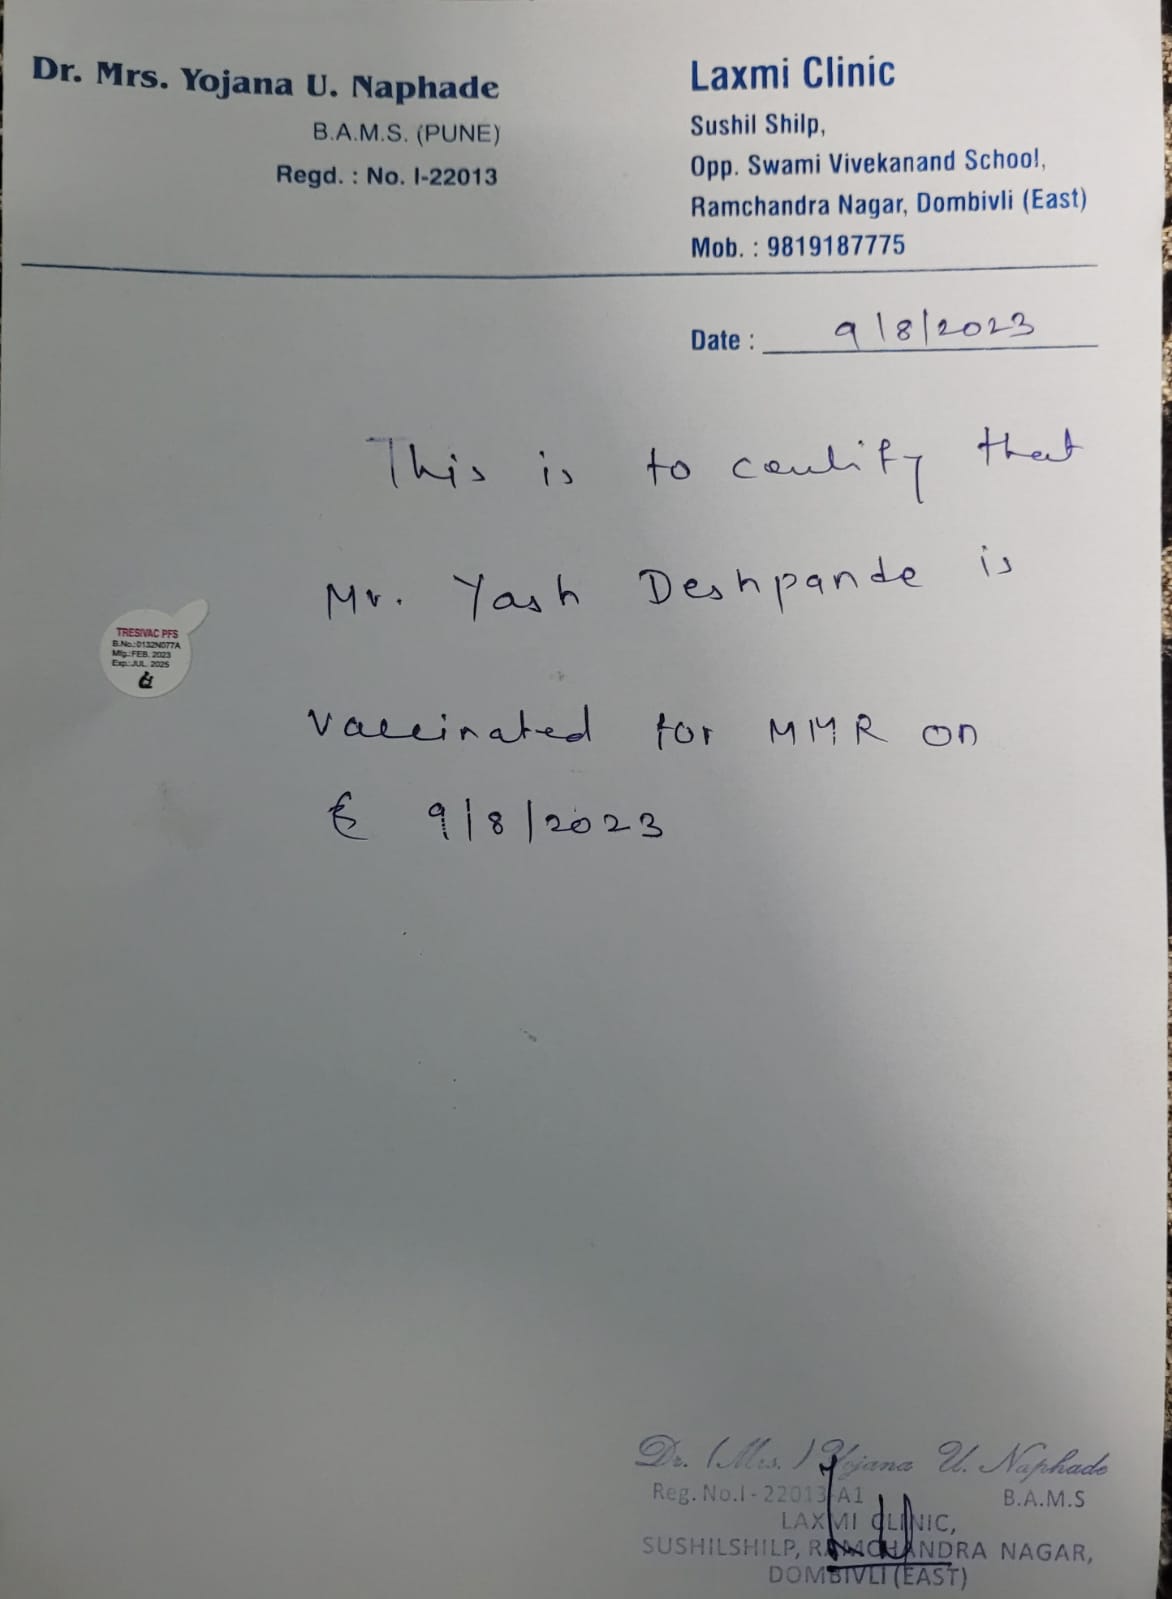 Dr. Mrs. Yojana U. Naphade
B.A.M.S. (PUNE)
Regd. : No. I-22013
Laxmi Clinic
Sushil Shilp,
Opp. Swami Vivekanand School,
Ramchandra Nagar, Dombivli (East)
Mob. : 9819187775
Date : 9/8/2023
This is to certify that
Mr. Yash Deshpande is
vaccinated for MMR on
9/8/2023
TRESIVAC PFS
B.No.:0132N077A
Mfg.:FEB. 2023
Exp.:JUL. 2025
Dr. (Mrs.) Yojana U. Naphade
Reg. No.I - 22013 A1 B.A.M.S
LAXMI CLINIC,
SUSHILSHILP, RAMCHANDRA NAGAR,
DOMBIVLI (EAST)